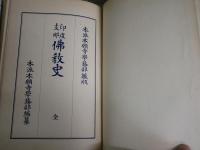 本派本願寺學務部蔵版
印度支那 佛教史 全
本派本願寺學務部編纂